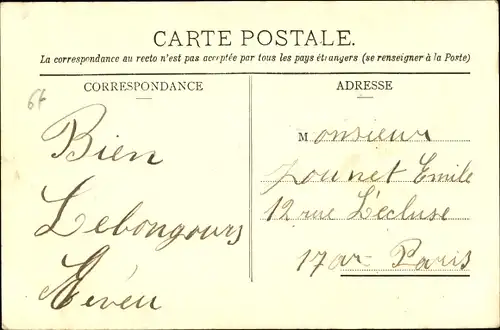 CARTE POSTALE.
La correspondance au recto n'est pas acceptée par tous les pays étrangers (se renseigner à la Poste)
CORRESPONDANCE
ADRESSE
Bien
Lebongours
Monsieur
Emile
12 rue L'écluse
17 ar- Paris